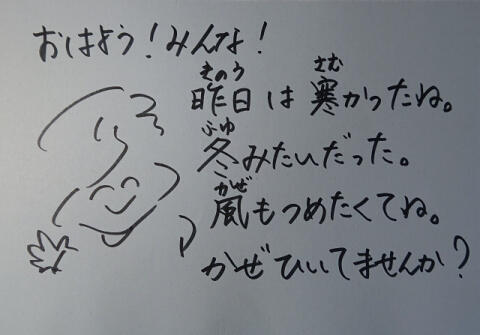 おはよう！みんな！
きのう さむ
昨日は寒かったね。
ふゆ
冬みたいだった。
かぜ
風もつめたくてね。
かぜひいてませんか？